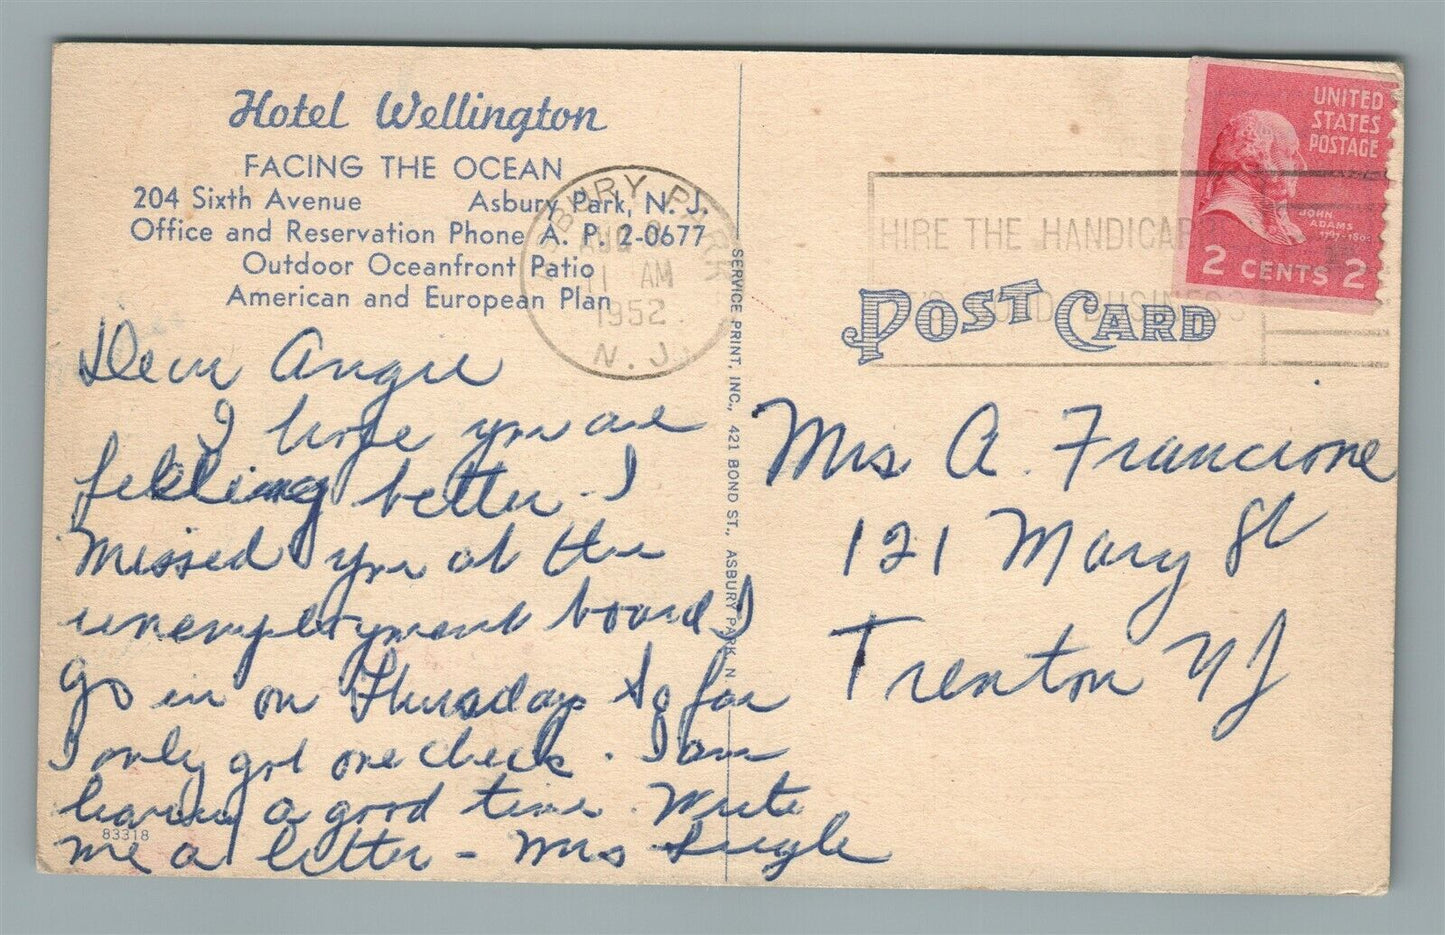 Hotel Wellington
FACING THE OCEAN
204 Sixth Avenue Asbury Park, N. J.
Office and Reservation Phone A. P. 2-0677
Outdoor Oceanfront Patio
American and European Plan
Dear Angie
I hope you are
feeling better - I
missed you at the
unemployment board I
go in on Thursday So far
I only got one check. I am
having a good time. Write
me a letter - Mrs
83318
SERVICE PRINT, INC., 421 BOND ST., ASBURY PARK, N
ASBURY PARK
AUG
11 AM
1952
N. J.
HIRE THE HANDICAP
GOOD BUSINESS
UNITED
STATES
POSTAGE
JOHN
ADAMS
1797-1801
2 CENTS 2
POST CARD
Mrs A. Francione
121 Mary St
Trenton NJ